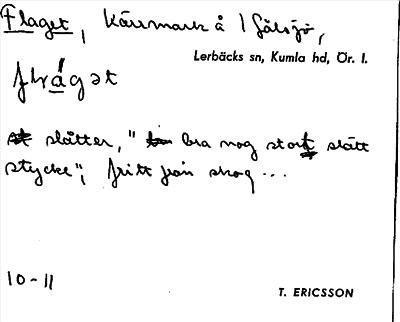 Flaget, Kärrmark å 1 Gälsjö,
Lerbäcks sn, Kumla hd, Ör. l.
slåtter, " bra nog stort slätt
stycke", fritt från skog ...
10-11
T. ERICSSON